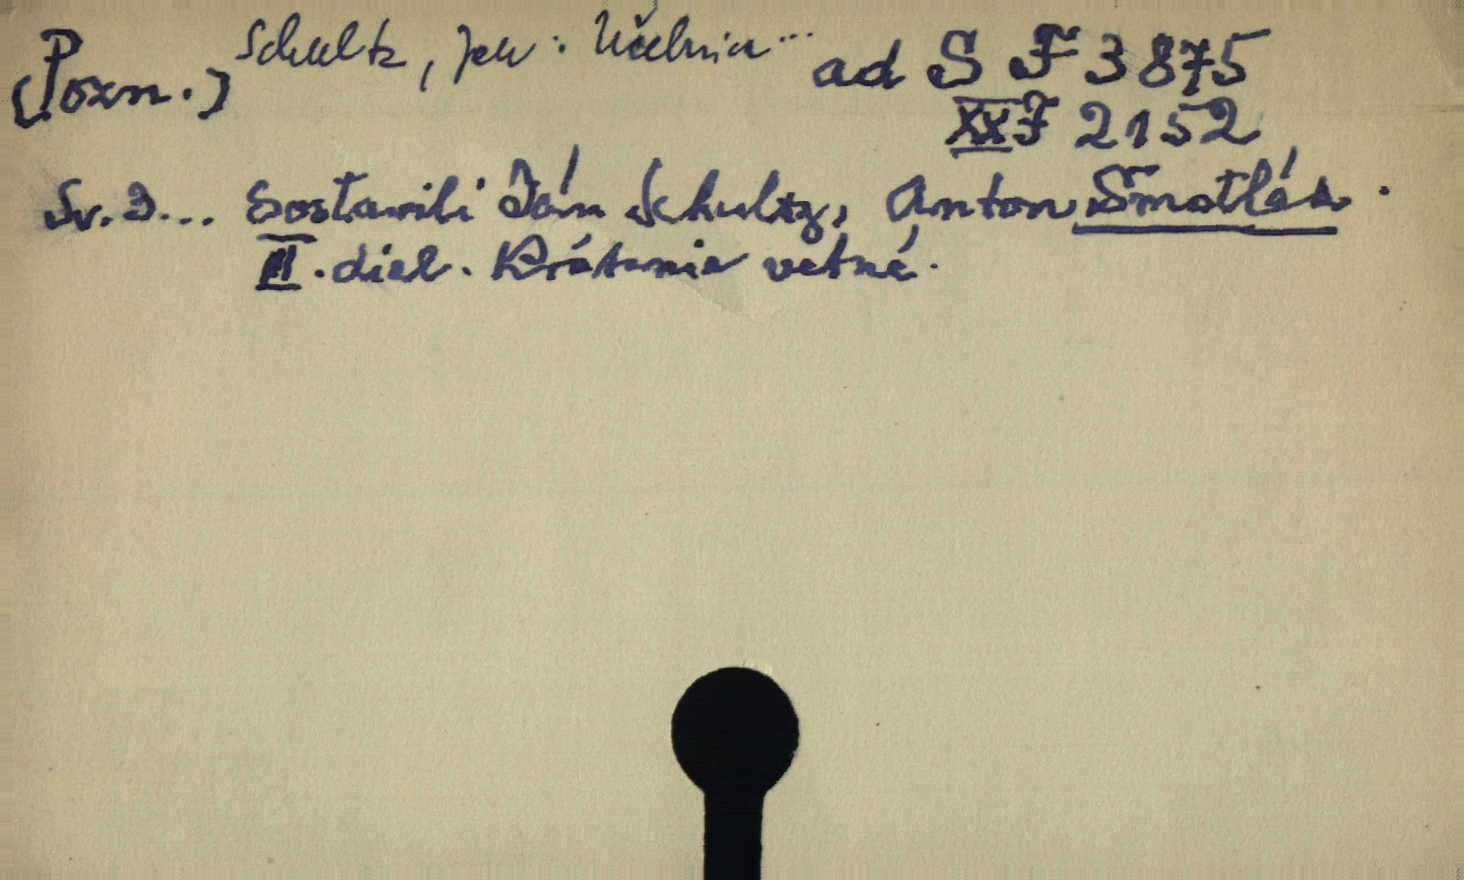 (Pozn.) Schultz, Jan: Učebnica... ad S F 3875
XX F 2152
Sv. 3... Sostavili Ján Schultz, Anton Šmatlák.
III. diel. Krátenie vetné.